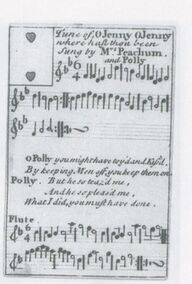 Tune of, O Jenny O Jenny
where hast thou been
Sung by Mrs. Peachum.
and Polly
O Polly you might have toy'd and Kiss'd.
By keeping Men off you keep them on.
Polly. But he so teaz'd me,
And he so pleas'd me,
What I did, you must have done.
Flute.